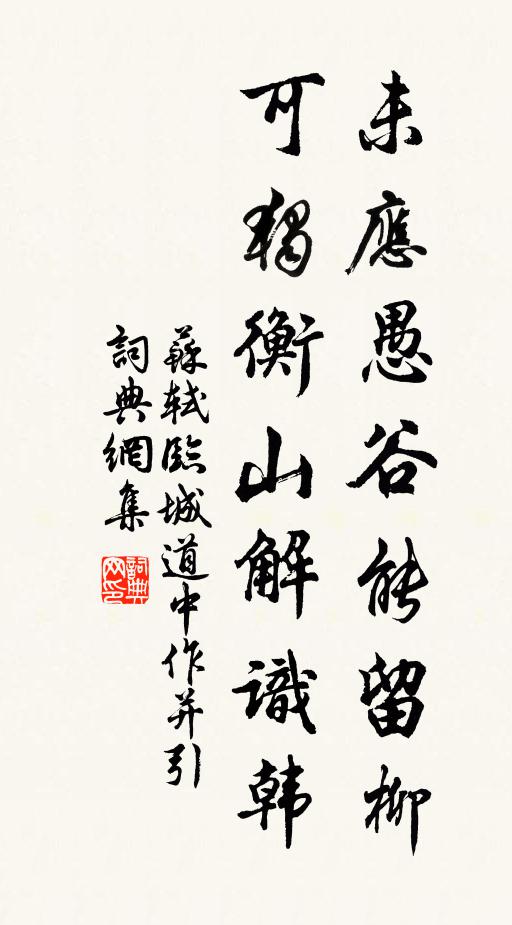 未應愚谷能留柳
可獨衡山解識韓
蘇軾臨城道中作并引
詞典網集
詞典网印